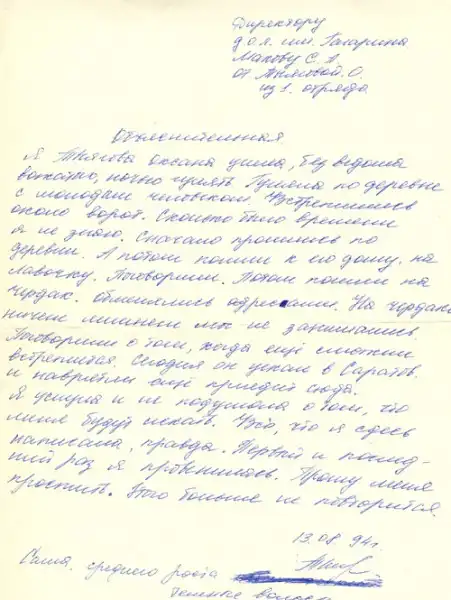 Директору
д о л. им. Гагарина
Макову С. А.
от Тиляевой. О.
из 1. отряда
Объяснительная
Я Тиляева Оксана ушла, без ведома
вожатых, ночью гулять. Гуляла по деревне
с молодым человеком. Встретились
около ворот. Сколько было времени
я не знаю. Сначала прошлись по
деревни. А потом пошли к его дому, на
лавочку. Поговорили. Потом пошли на
чердак. Обменялись адресами. На чердаке
ничем лишнем мы не занимались.
Поговорили о том, когда ещё сможем
встретится. Сегодня он уехал в Саратов.
и наврятли ещё приедит сюда.
Я ушла и не подумала о том, что
меня будут искать. Всё, что я здесь
написала, правда. Первый и послед-
ний раз я провинилась. Прошу меня
простить. Этого больше не повторится.
13.08 94г.
Саша. среднего роста
темные волосы